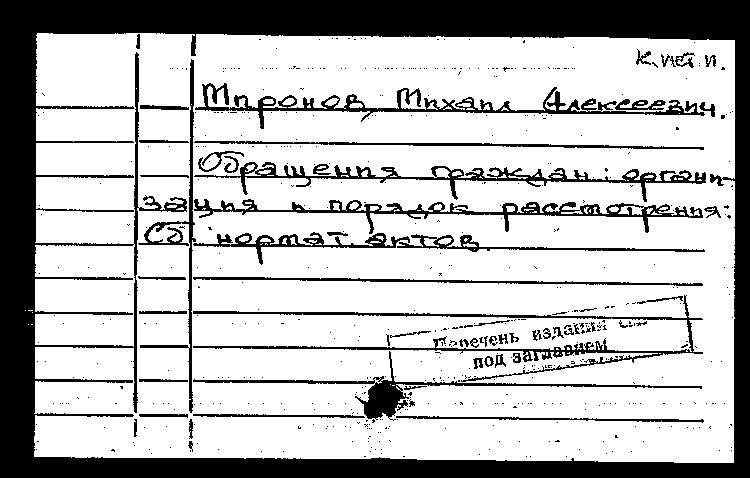 К. лет. п.
Миронов, Михаил Алексеевич.
Обращения граждан: органи-
зация и порядок рассмотрения:
Сб. нормат. актов.
Перечень издания см.
под заглавием